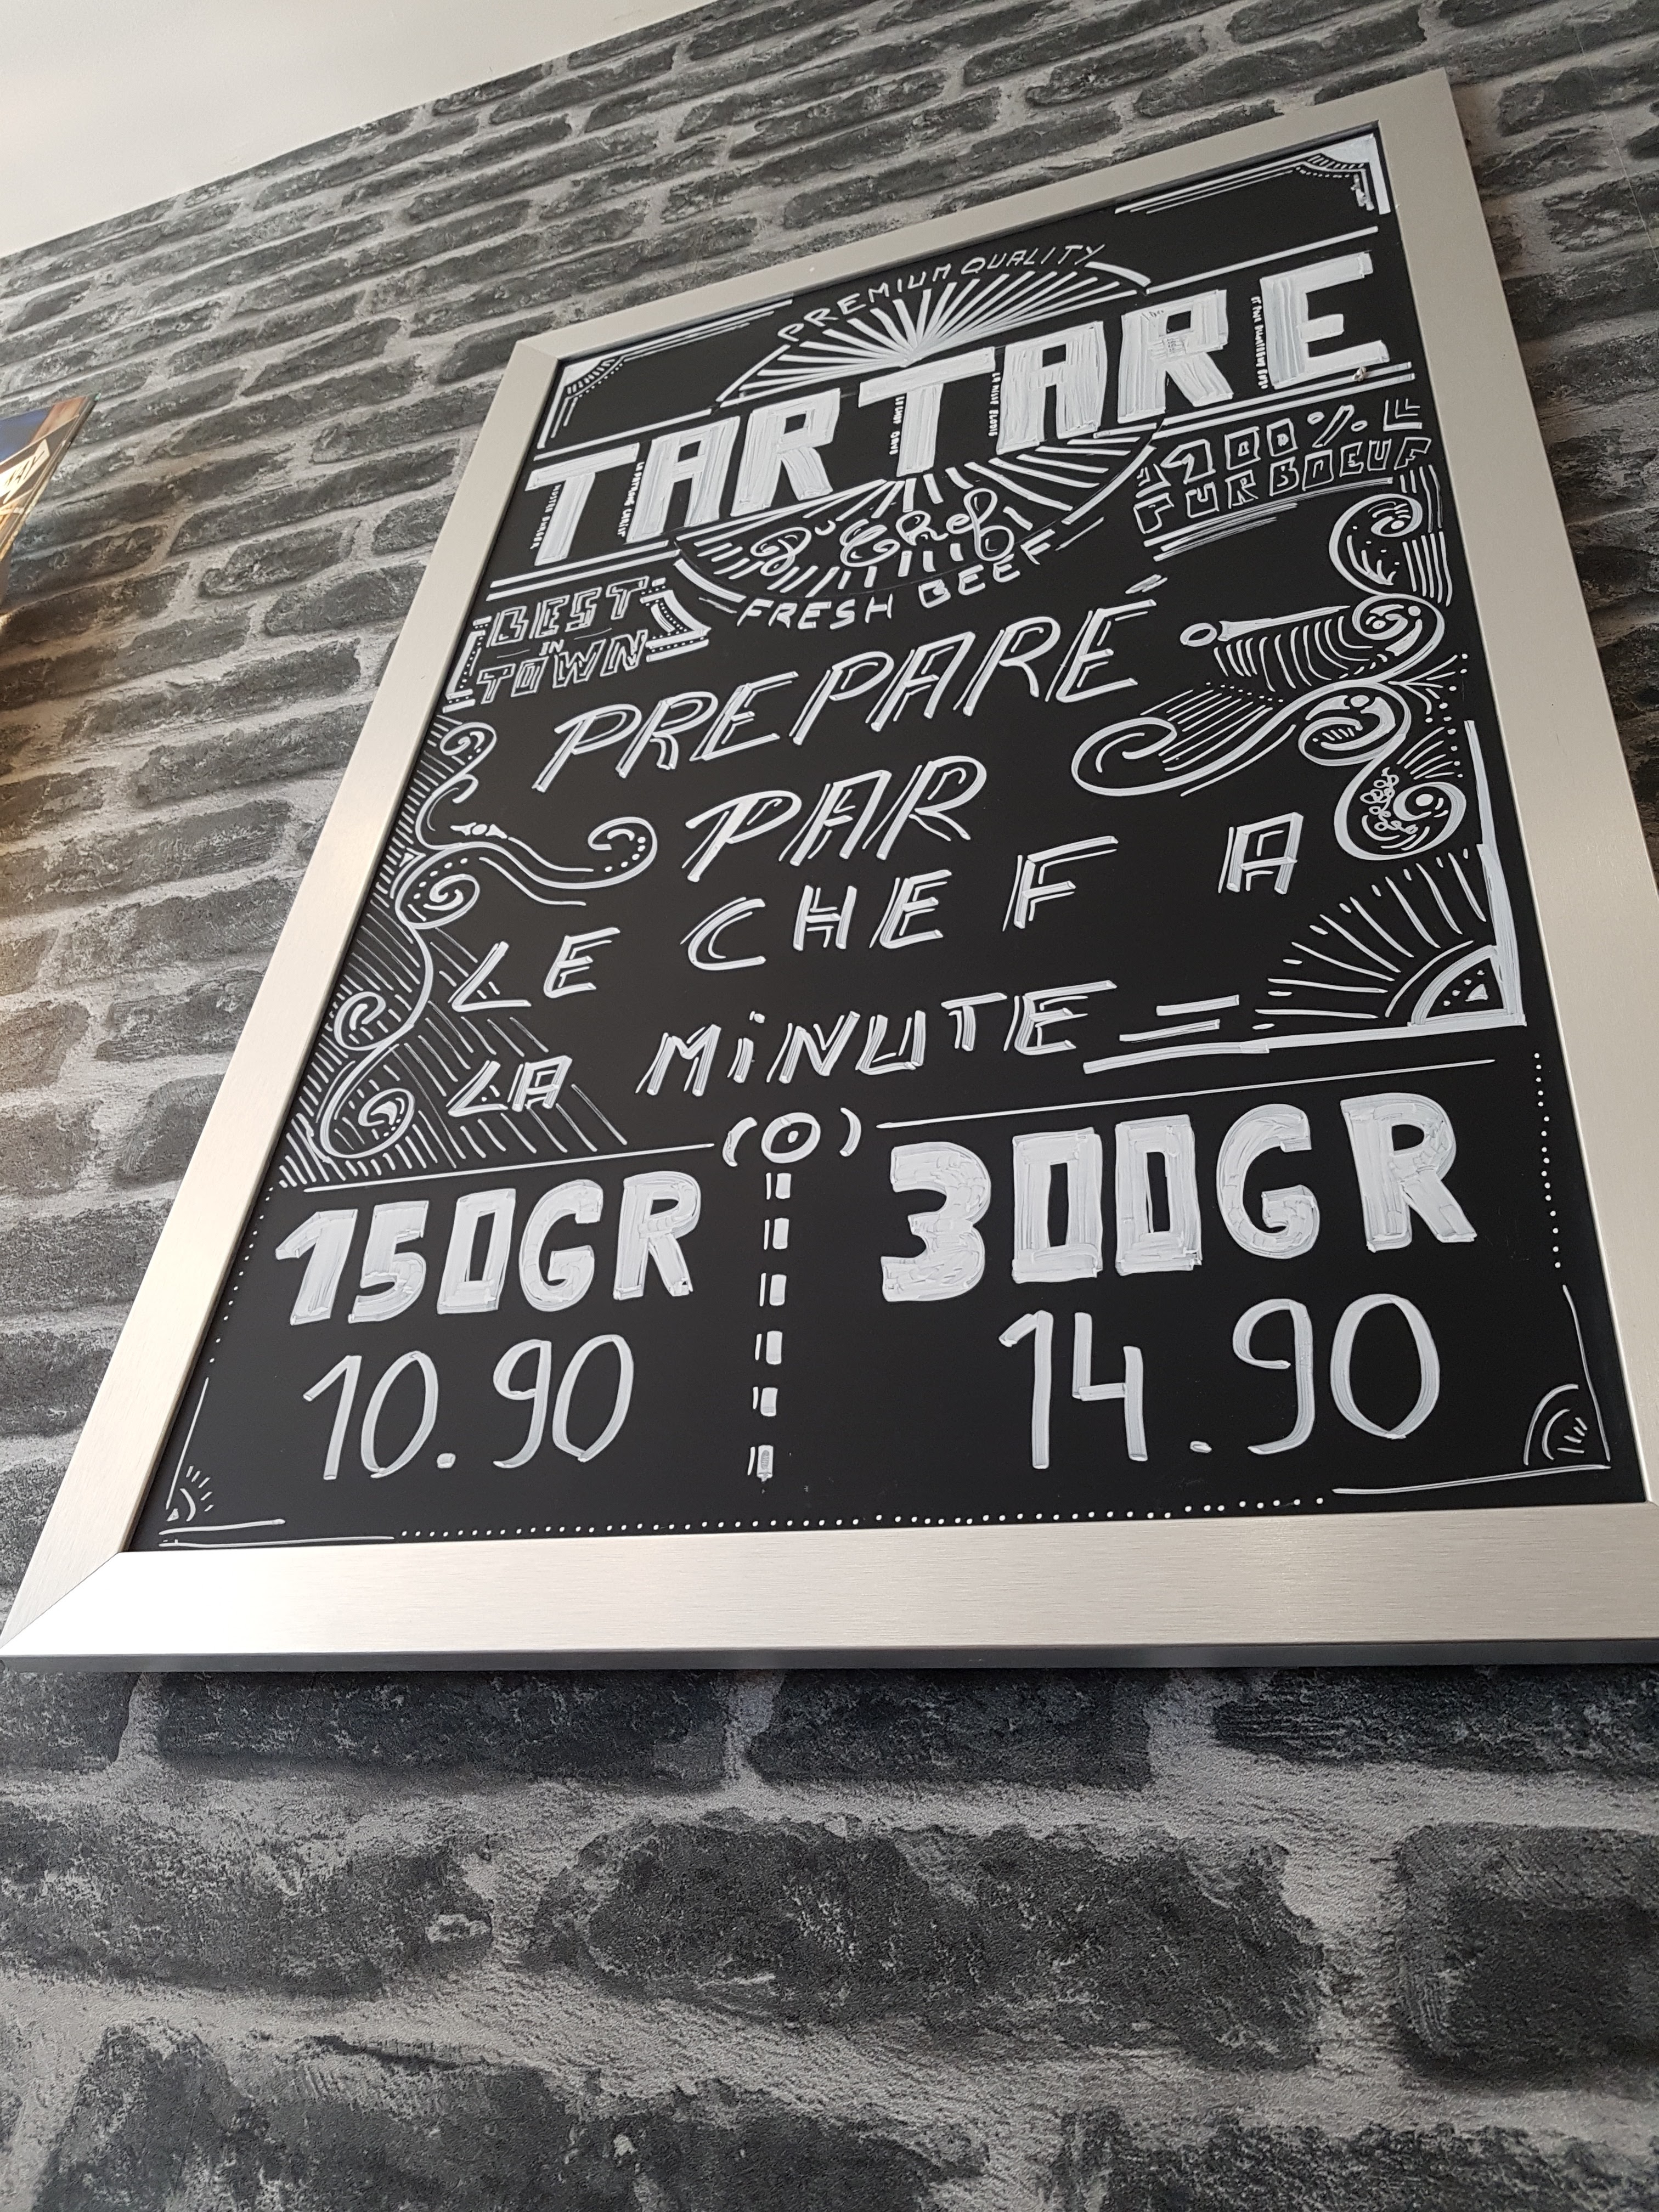 PREMIUM QUALITY
TARTARE
Du Chef
FRESH BEEF
100%
PUR BOEUF
BEST
IN
TOWN
PREPARÉ
PAR
LE CHEF A
LA MiNUTE
150GR
10.90
300GR
14.90